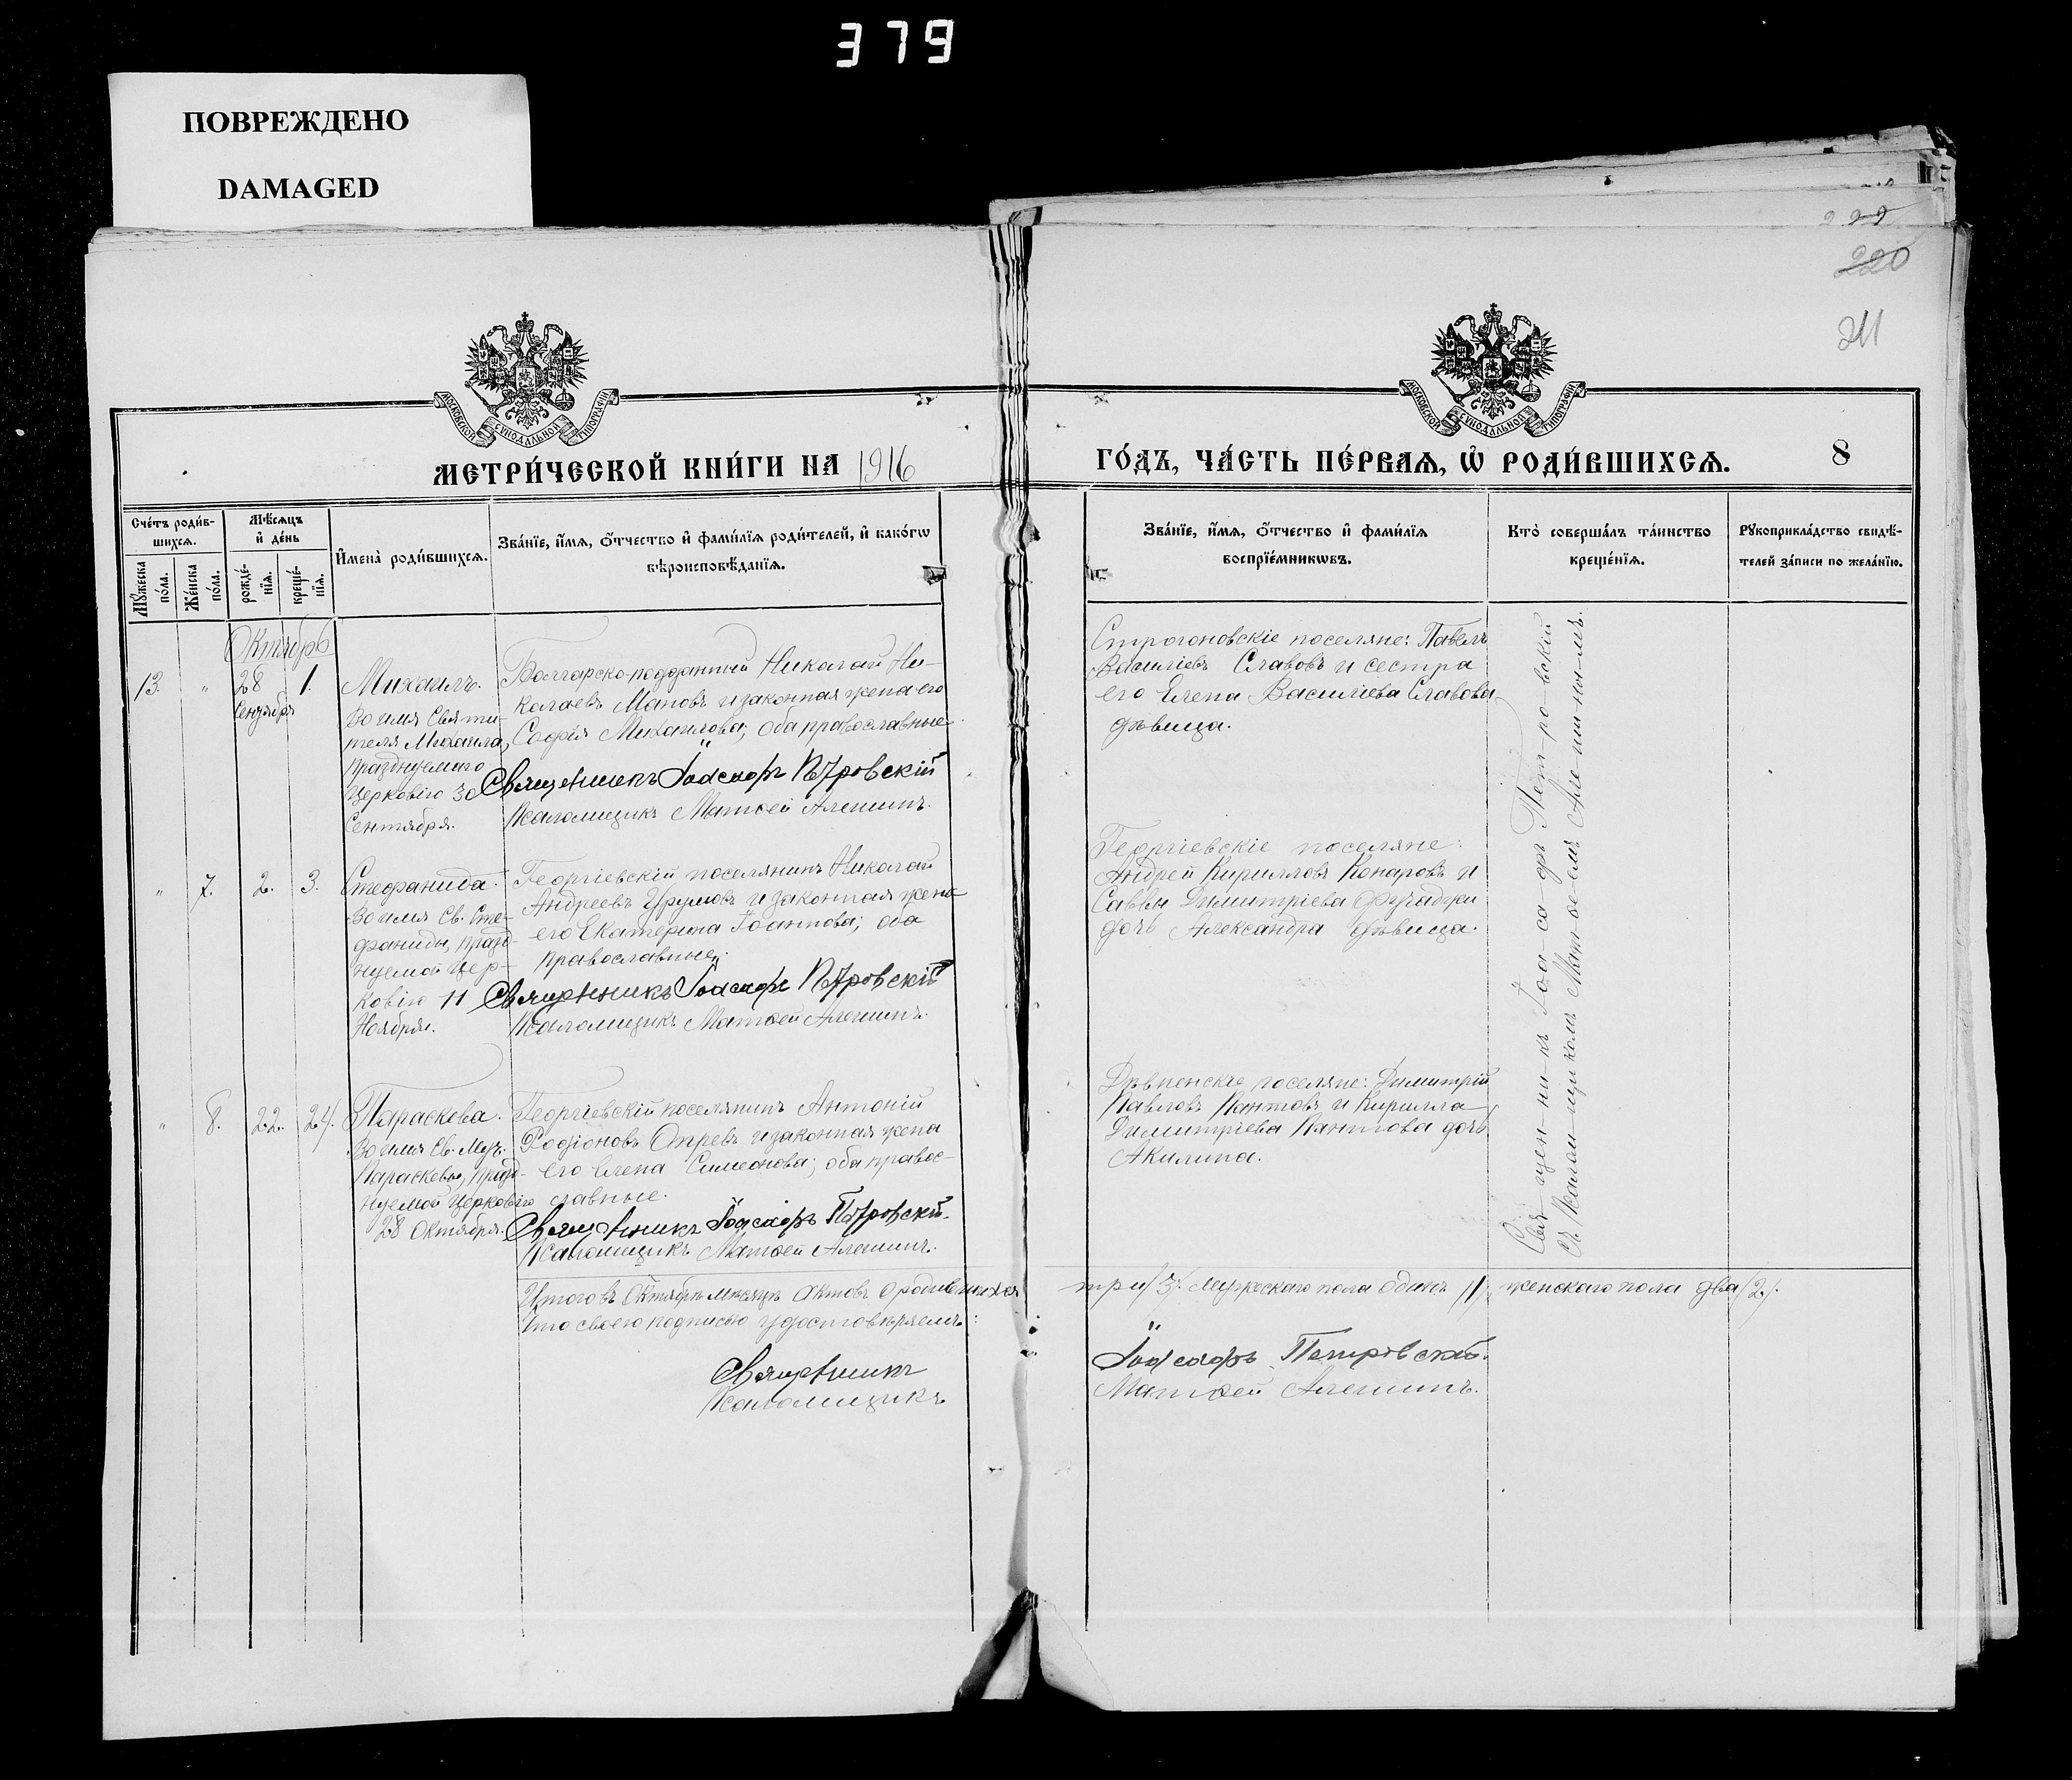 379
ПОВРЕЖДЕНО
DAMAGED
222
220
211
МОСКОВСКОЙ СѴНОДАЛЬНОЙ ТИПОГРАФІИ
МОСКОВСКОЙ СѴНОДАЛЬНОЙ ТИПОГРАФІИ
МЕТРИ́ЧЕСКОЙ КНИ́ГИ НА 1916
ГО́ДЪ, ЧА́СТЬ ПЕ́РВАѦ, Ѡ҆ РОДИ́ВШИХСѦ.
8
Сче́тъ роди́в-
шихсѧ.
Мꙋ́жеска
по́ла.
Же́нска
по́ла.
Мѣ́сѧцъ
и҆ де́нь
рожде́-
нїѧ.
креще́-
нїѧ.
И҆мена̀ роди́вшихсѧ.
Зва́нїе, и҆́мѧ, ѻ҆́тчество и҆ фами́лїѧ роди́телей, и҆ како́гѡ
вѣроисповѣ́данїѧ.
Зва́нїе, и҆́мѧ, ѻ҆́тчество и҆ фами́лїѧ
воспрїе́мникѡвъ.
Кто̀ соверша́лъ та́инство
креще́нїѧ.
Рꙋкоприкла́дство свидѣ́-
телей за́писи по жела́нїю.
Октябрь
13.
"
28
Сентября
1.
Михаилъ.
Во имя Святи-
теля Михаила,
празднуемаго
Церковію 30
Сентября.
Болгарско-подданный Николай Ни-
колаевъ Мановъ и законная жена его
Софія Михаилова; оба православные.
Священникъ Іоасафъ Петровскій
Псаломщикъ Матѳей Алешинъ.
Строгоновскіе поселяне: Павелъ
Василіевъ Славовъ и сестра
его Елена Василіева Славова
дѣвица.
"
7.
2.
3.
Стефанида.
Во имя Св. Сте-
фаниды, празд-
нуемой Цер-
ковію 11
Ноября.
Георгіевскій поселянинъ Николай
Андреевъ Урумовъ и законная жена
его Екатерина Іоаннова; оба
православные.
Священникъ Іоасафъ Петровскій
Псаломщикъ Матѳей Алешинъ.
Георгіевскіе поселяне:
Андрей Кирилловъ Конаровъ и
Саввы Димитріева Фучаджи
дочь Александра дѣвица.
"
8.
22.
24.
Параскева.
Во имя Св. Муч.
Параскевы, празд-
нуемой Церковію
28 Октября.
Георгіевскій поселянинъ Антоній
Родіоновъ и законная жена
его Елена Симеонова; оба право-
славные.
Священникъ Іоасафъ Петровскій.
Псаломщикъ Матѳей Алешинъ.
поселяне: Димитрій
Павловъ Пантовъ и Кирилла
Димитріева Пантова дочь
Акилина.
Свя-щен-ни-къ Іоа-са-фъ Пет-ро-вскій
съ Псалом-щи-комъ Мат-ѳе-емъ Але-ши-ны-мъ.
Итого въ Октябрѣ мѣсяцѣ актовъ о родившихся три /3/. Мужескаго пола одинъ /1/, женскаго пола два /2/.
Что своею подписью удостовѣряемъ:
Священникъ Іоасафъ Петровскій.
Псаломщикъ Матѳей Алешинъ.